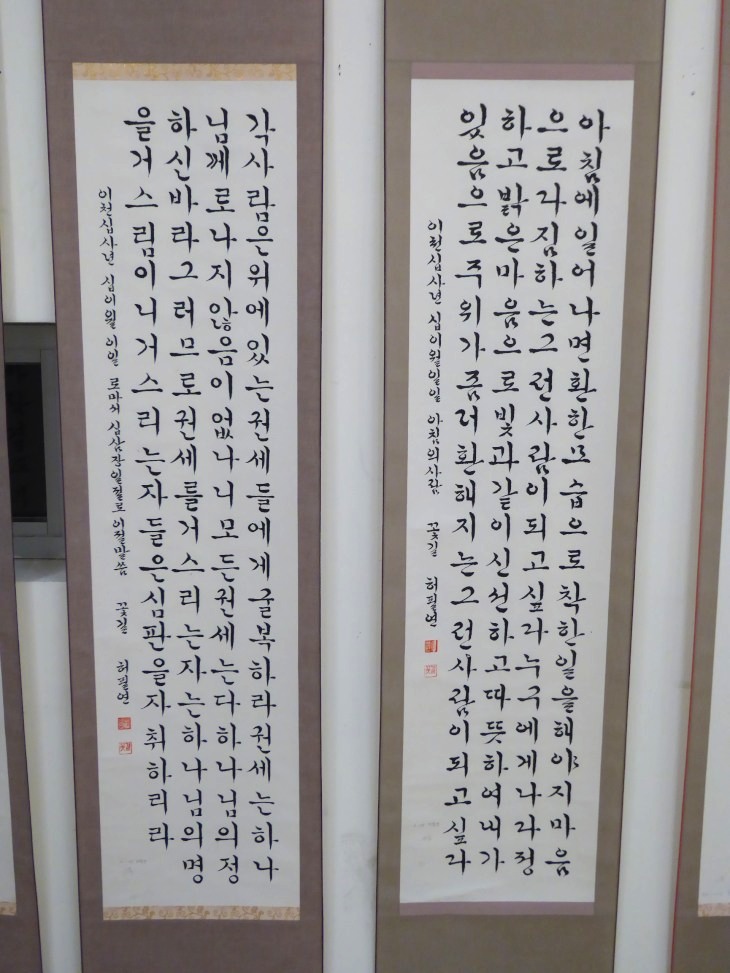 아침에일어나면환한모습으로착한일을해야지마음
으로다짐하는그런사람이되고싶다누구에게나다정
하고밝은마음으로빛과같이신선하고따뜻하여내가
있음으로주위가좀더환해지는그런사람이되고싶다
이천십사년 십이월일일 아침의사람 꽃길 허필연
각사람은위에있는권세들에게굴복하라권세는하나
님께로나지않음이없나니모든권세는다하나님의정
하신바라그러므로권세를거스리는자는하나님의명
을거스림이니거스리는자들은심판을자취하리라
이천십사년 십이월 이일 로마서 십삼장일절로이절말씀 꽃길 허필연